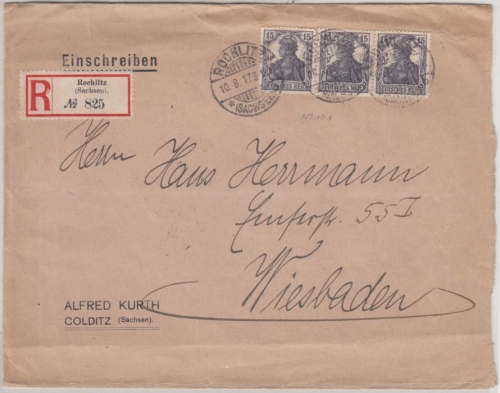 Einschreiben
R
Rochlitz
(Sachsen).
№ 825
ROCHLITZ
10.8.17.9
* (SACHSEN)
15 15
15 15
15 15
DEUTSCHES REICH
DEUTSCHES REICH
DEUTSCHES REICH
Herrn Hans Herrmann
Emserstr. 55 I
Wiesbaden
ALFRED KURTH
COLDITZ (Sachsen).